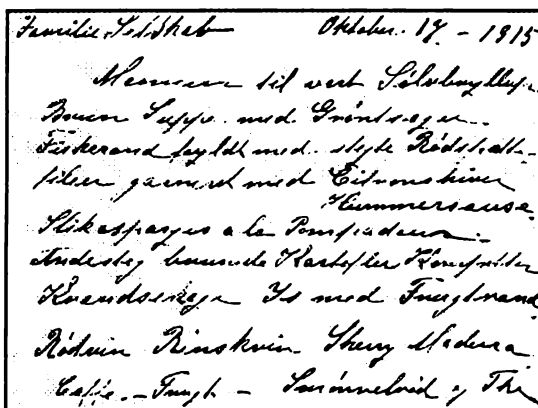 Familie Selskab Oktober 17. - 1915
Menuen til vort Sølvbryllup.
Brun Suppe med Grøntsager.
Fiskerand fyldt med stegte Rødspætte-
fileer garneret med Citronskiver
Hummersause.
Slikasparges a la Pompadour.
Andesteg brunede Kartofler
Is med Frugtrand
Rødvin Rinskvin Sherry Madeira
Caffe. - Frugt - og The